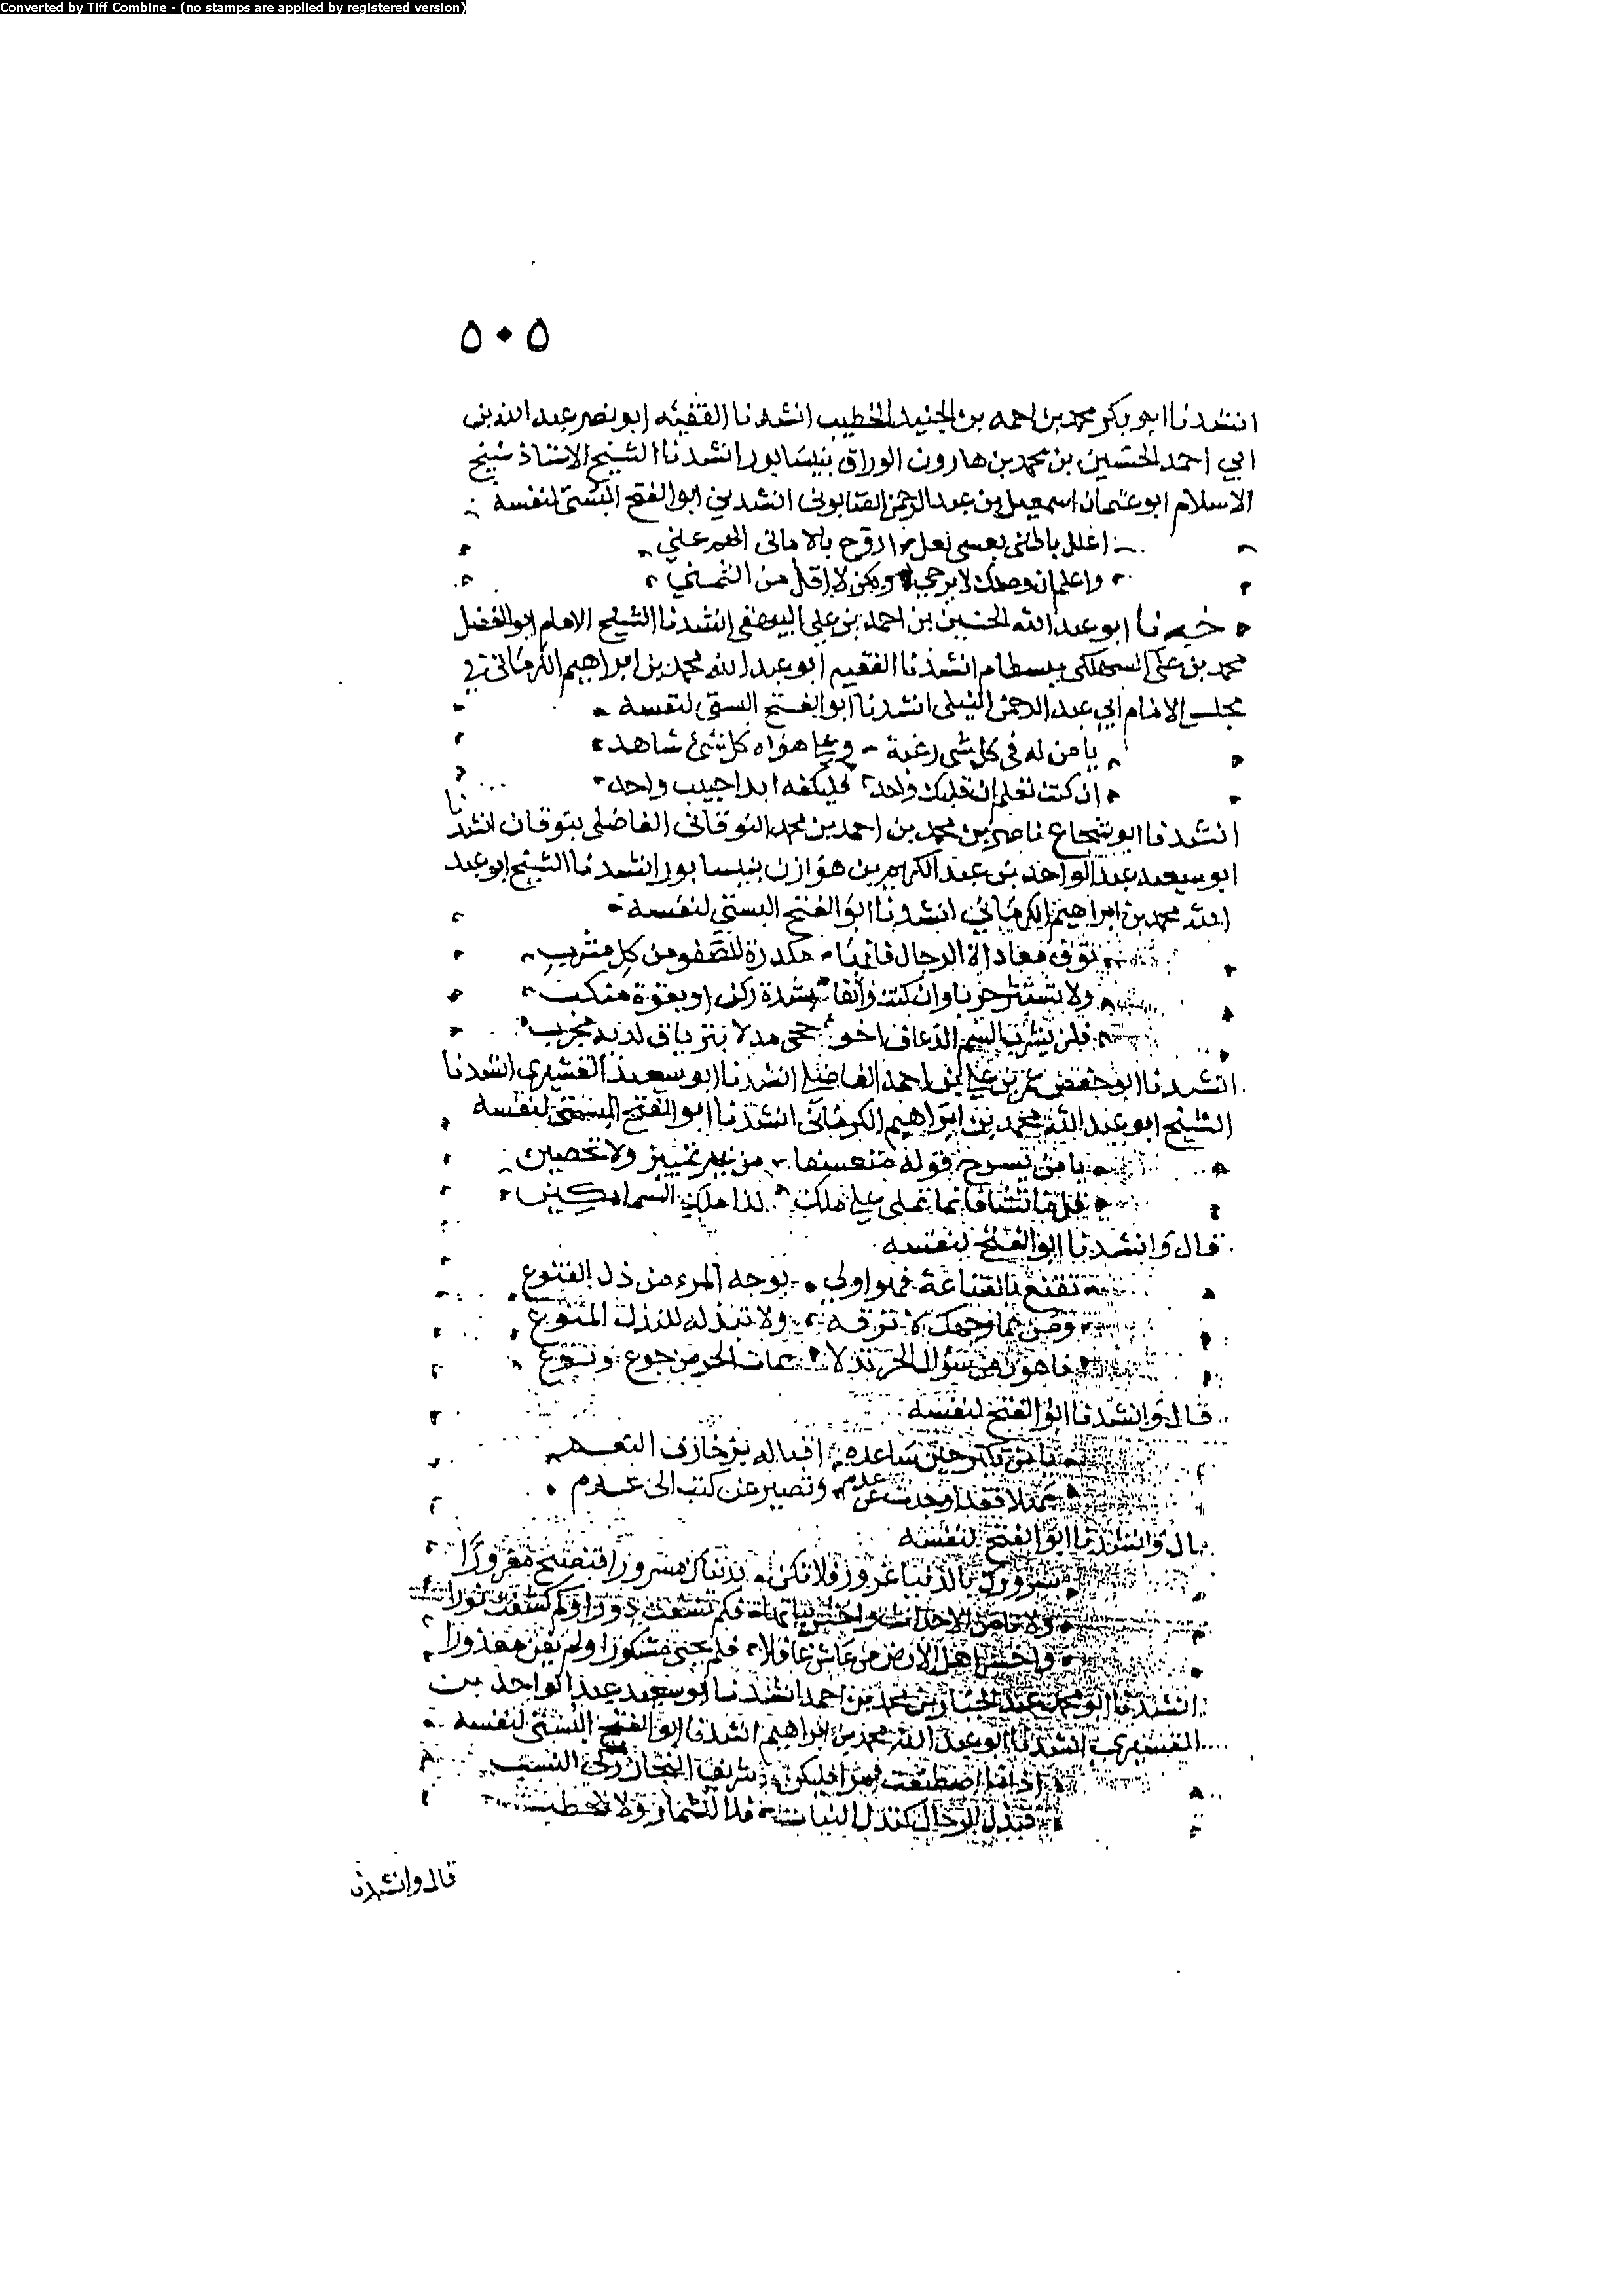 Converted by Tiff Combine - (no stamps are applied by registered version)
٥٠٥
انشدنا ابو بكر محمد بن احمد بن الجنيد الخطيب انشدنا الفقيه ابو نصر عبد الله بن
ابي احمد الحسين بن محمد بن هارون الوراق بنيسابور انشدنا الشيخ الاستاذ شيخ
الاسلام ابو عثمان اسمعيل بن عبد الرحمن الصابوني انشدني ابو الفتح البستي لنفسه
اعلل بالمنى بعسى لعل اروح بالاماني الهم عني
واعلم ان وصلك لا يرجى ولكن لا اقل من التمني
خبرنا ابو عبد الله الحسين بن احمد بن علي البيهقي انشدنا الشيخ الامام ابو الفضل
محمد بن علي السهلكي ببسطام انشدنا الفقيه ابو عبد الله محمد بن ابراهيم الكرماني في
مجلس الامام ابي عبد الرحمن النيلي انشدنا ابو الفتح البستي لنفسه
يا من له في كل شي رغبة وعلى هواه كل شيء شاهد
ان كنت تعلم ان قلبك واحد فليكفه ابدا حبيب واحد
انشدنا ابو شجاع ناصر بن محمد بن احمد بن محمد النوقاني الفاضلي بنوقان انشدنا
ابو سعيد عبد الواحد بن عبد الكريم بن هوازن بنيسابور انشدنا الشيخ ابو عبد
الله محمد بن ابراهيم الكرماني انشدنا ابو الفتح البستي لنفسه
توق معاداة الرجال فانها مكدرة للصفو من كل مشرب
ولا تستثر حربا وان كنت واثقا بشدة ركن او بقوة منكب
فلن يشرب السم الذعاف اخو حجى مدلا بترياق لديه مجرب
انشدنا ابو حفص عمر بن علي بن احمد الفاضلي انشدنا ابو سعيد القشيري انشدنا
الشيخ ابو عبد الله محمد بن ابراهيم الكرماني انشدنا ابو الفتح البستي لنفسه
يا من يسرح قوله متعسفا من غير تمييز ولا تحصين
قل ما تشا فانما تملى على ملك لذا ملك السما مكين
قال وانشدنا ابو الفتح لنفسه
تقنع بالقناعة فهو اولى بوجه المرء من ذل القنوع
وصن ماوجهك لا ترقه ولا تبذله للنذل المنوع
فاهون من سؤال الحر نذلا ممات الحر من جوع ونوع
قال وانشدنا ابو الفتح لنفسه
يا من تكبر حين ساعده اقباله بزخارف النعم
مهلا فقد اوجدت عن عدم وتصير عن كثب الى عدم
قال وانشدنا ابو الفتح لنفسه
سرورك بالدنيا غرور فلا تكن بدنياك مسرورا فتصبح مغرورا
ولا تامن الاحداث واخش بياتها فكم نسفت دورا وكم كسفت نورا
واخسر اهل الارض من عاش غافلا فلم يحي مشكورا ولم يفن معذورا
انشدنا ابو محمد عبد الجبار بن محمد بن احمد انشدنا ابو سعيد عبد الواحد بن
القشيري انشدنا ابو عبد الله محمد بن ابراهيم انشدنا ابو الفتح البستي لنفسه
اذا ما اصطنعت امرا فليكن شريف النجار زكي النسب
فنذل الرجال كنذل النبات فلا للثمار ولا للحطب
قال وانشدنا